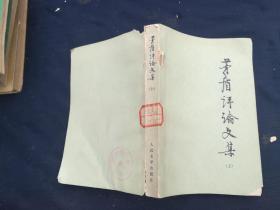 茅盾评论文集
(上)
茅盾评论文集
(上)
人民文学出版社